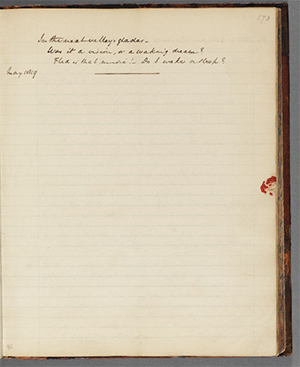 173
In the next valley-glades.
Was it a vision, or a waking dream?
Fled is that music :- Do I wake or sleep?
May 1819